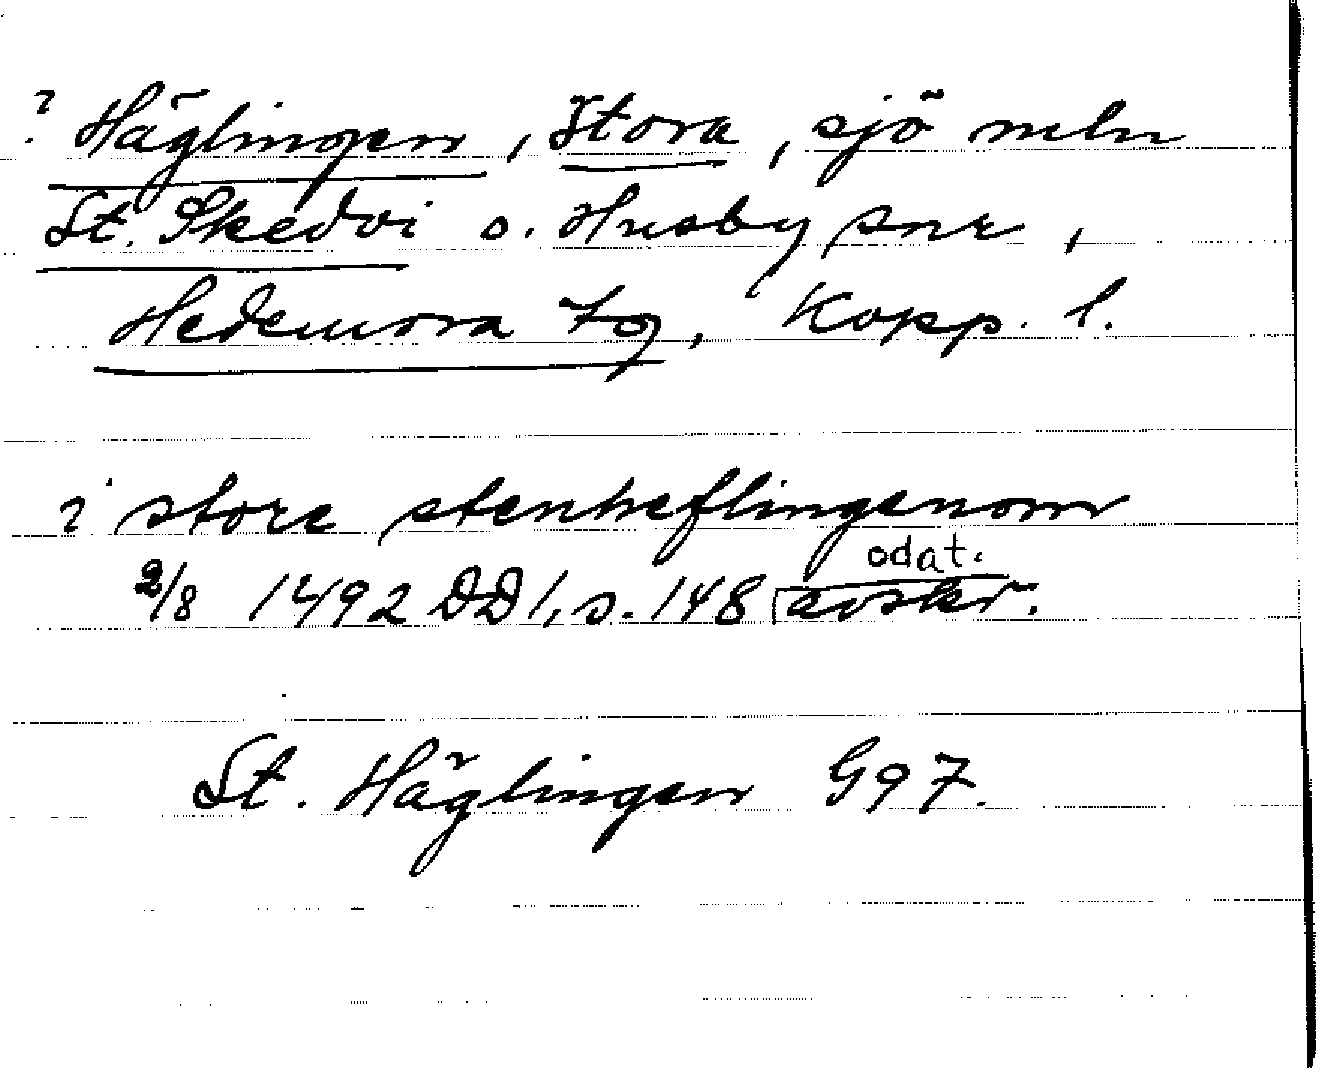 ? Häglingen, Stora, sjö meln
St. Skedvi o. Husby snr,
Hedemora tg, Kopp. l.
i store stenheflingenom
odat.
2/8 1492 DD 1, s. 148 avskr.
St. Häglingen G97.